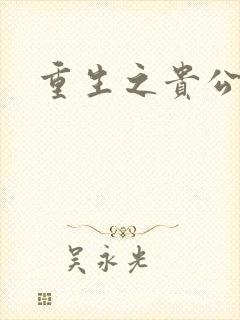 重生之貴公
吴永光